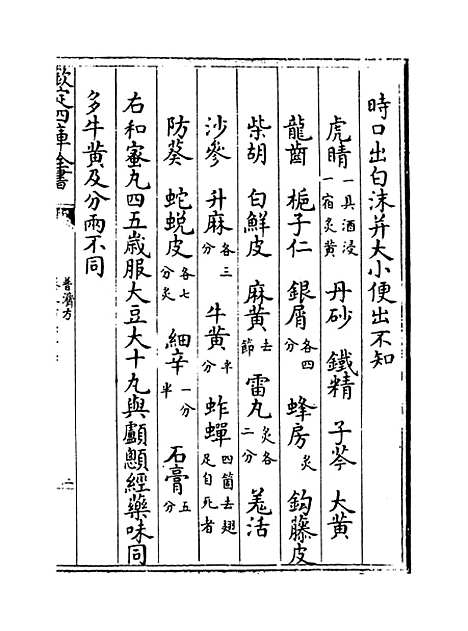 時口出白沫并大小便出不知
虎睛一具酒浸一宿炙黄 丹砂 鐵精 子芩 大黄
龍齒 梔子仁 銀屑各四分 蜂房炙 鈎藤皮
柴胡 白鮮皮 麻黄去節 雷丸炙各二分 羗活
沙參 升麻各三分 牛黄半分 蚱蟬四箇去翅足自死者
防葵 蛇蜕皮各七分炙 細辛一分半 石膏五分
右和蜜丸四五歳服大豆大十九丸與顱顖經藥味同
多牛黄及分兩不同
欽定四庫全書
普濟方
二